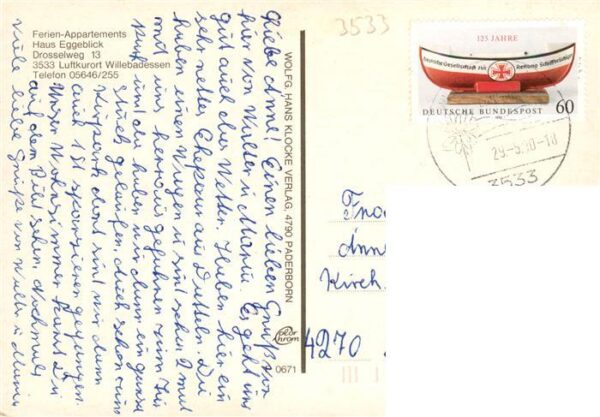 Ferien-Appartements
Haus Eggeblick
Drosselweg 13
3533 Luftkurort Willebadessen
Telefon 05646/255
Liebe Anne! Einen lieben Gruß von
hier von Walter u Mama. Es geht uns
gut auch das Wetter. Haben hier ein
sehr nettes Ehepaar aus Datteln. Die
haben einen Wagen u sind schon 2 mal
mit uns herraus gefahren zum
und da haben wir dann ein ganzes
Stück gelaufen, auch schon zum
Kurpark dort sind wir dann
auch 1 St spazieren gegangen.
Unser Wohnzimmer kanst Du
auf dem Bild sehen. Nochmals
viele liebe Grüße von Walter u Mama
WOLFG. HANS KLOCKE VERLAG, 4790 PADERBORN
color
chrom
0671
3533
125 JAHRE
Deutsche Gesellschaft zur Rettung Schiffbrüchiger
DEUTSCHE BUNDESPOST
60
29.-5.90-18
3533
Frau
Anne
Kirch
4270